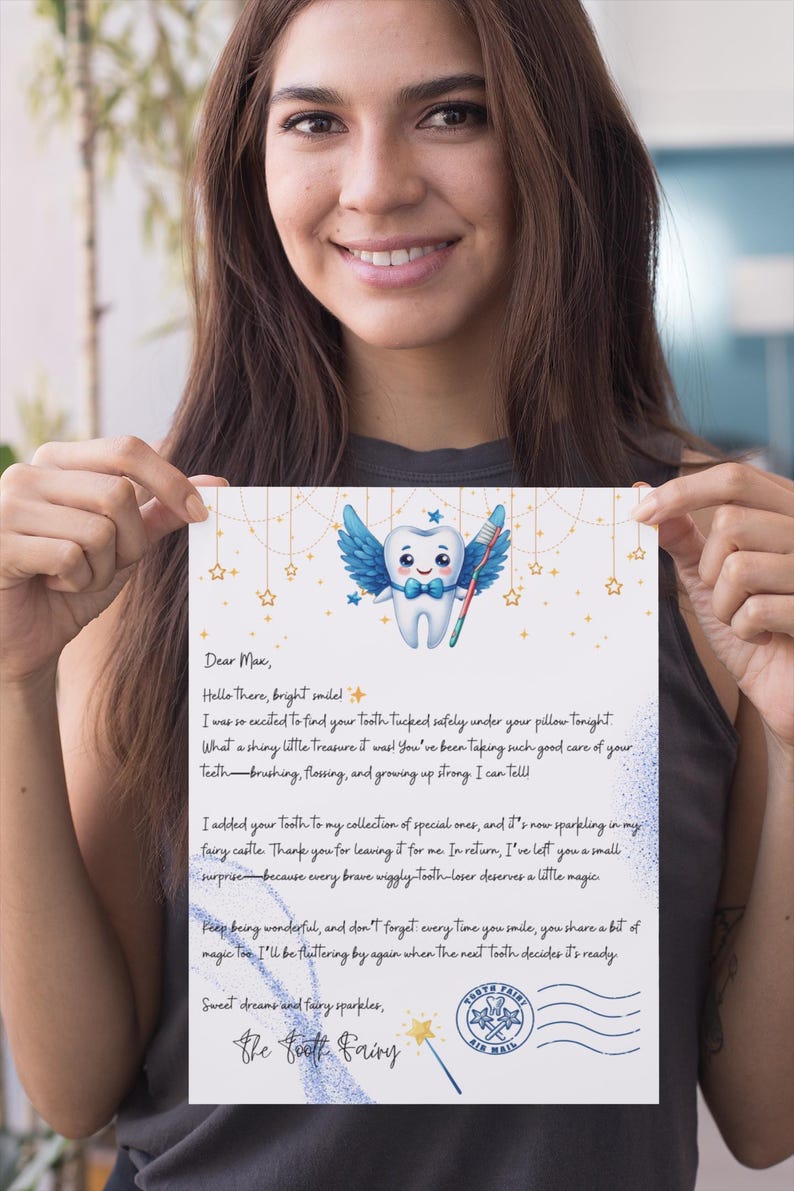 Dear Max,
Hello there, bright smile!
I was so excited to find your tooth tucked safely under your pillow tonight.
What a shiny little treasure it was! You've been taking such good care of your
teeth—brushing, flossing, and growing up strong. I can tell!
I added your tooth to my collection of special ones, and it's now sparkling in my
fairy castle. Thank you for leaving it for me. In return, I've left you a small
surprise—because every brave wiggly-tooth-loser deserves a little magic.
Keep being wonderful, and don't forget: every time you smile, you share a bit of
magic too. I'll be fluttering by again when the next tooth decides it's ready.
Sweet dreams and fairy sparkles,
The Tooth Fairy
TOOTH FAIRY
AIR MAIL